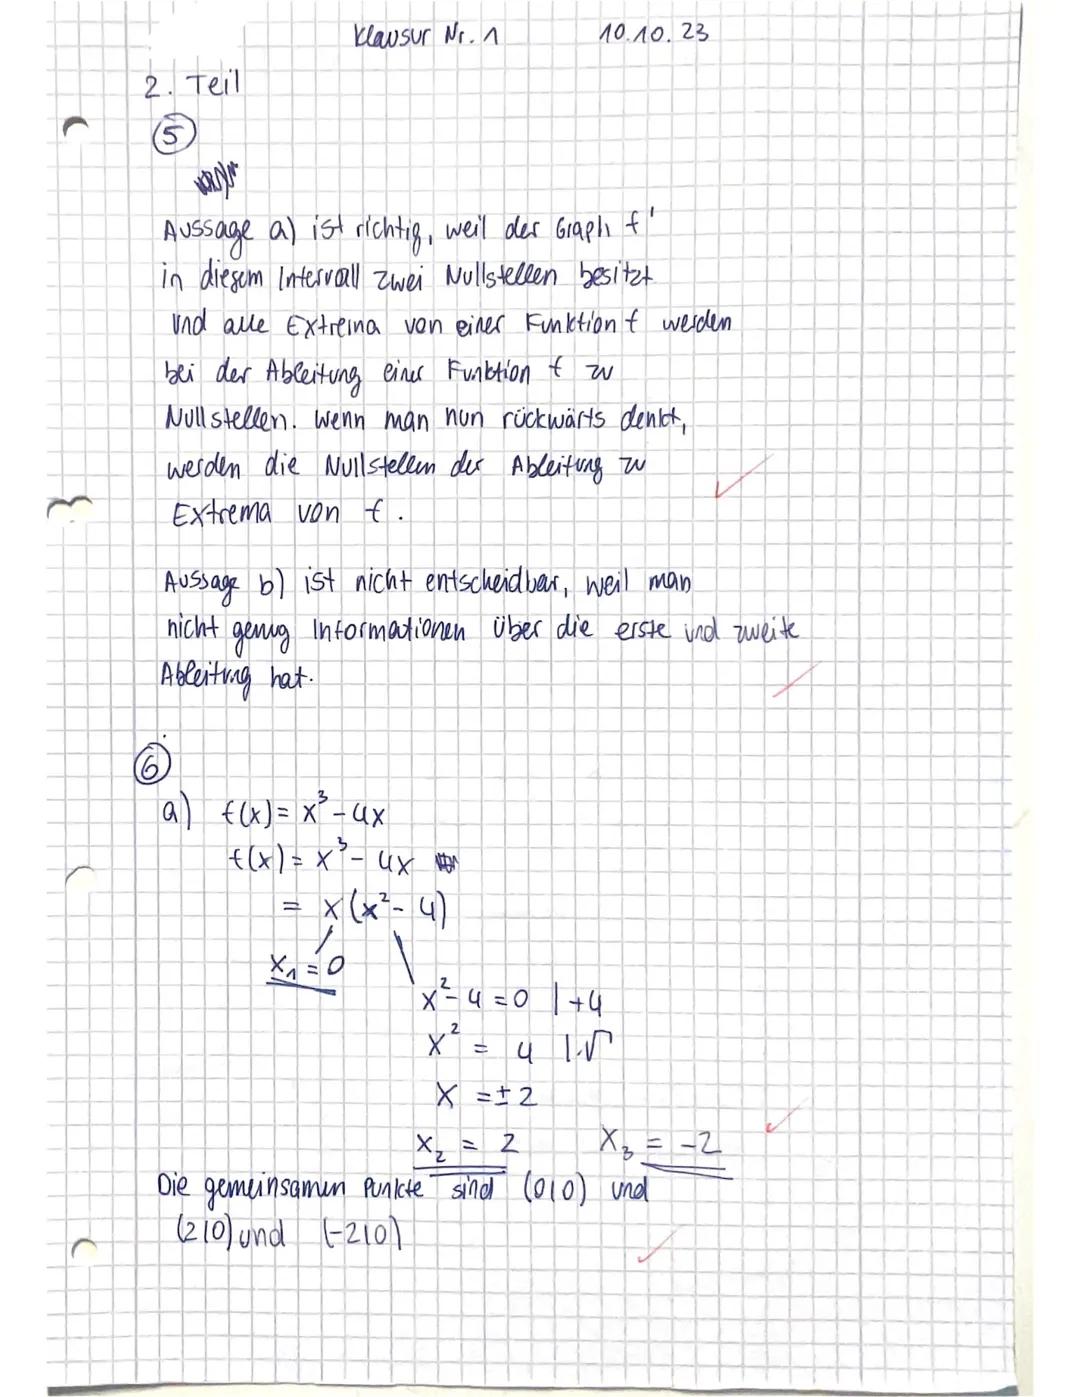 Klausur Nr. 1 10.10.23
2. Teil
5
Aussage a) ist richtig, weil der Graph f'
in diesem Intervall zwei Nullstellen besitzt
und alle Extrema von einer Funktion f werden
bei der Ableitung einer Funktion f zu
Nullstellen. Wenn man nun rückwärts denkt,
werden die Nullstellen der Ableitung zu
Extrema von f.
Aussage b) ist nicht entscheidbar, weil man
nicht genug Informationen über die erste und zweite
Ableitung hat.
6
a) f(x) = x³ - 4x
f(x) = x³ - 4x
= x(x² - 4)
x₁ = 0
x² - 4 = 0 | +4
x² = 4 | √
x = ± 2
x₂ = 2 x₃ = -2
Die gemeinsamen Punkte sind (0|0) und
(2|0) und (-2|0)